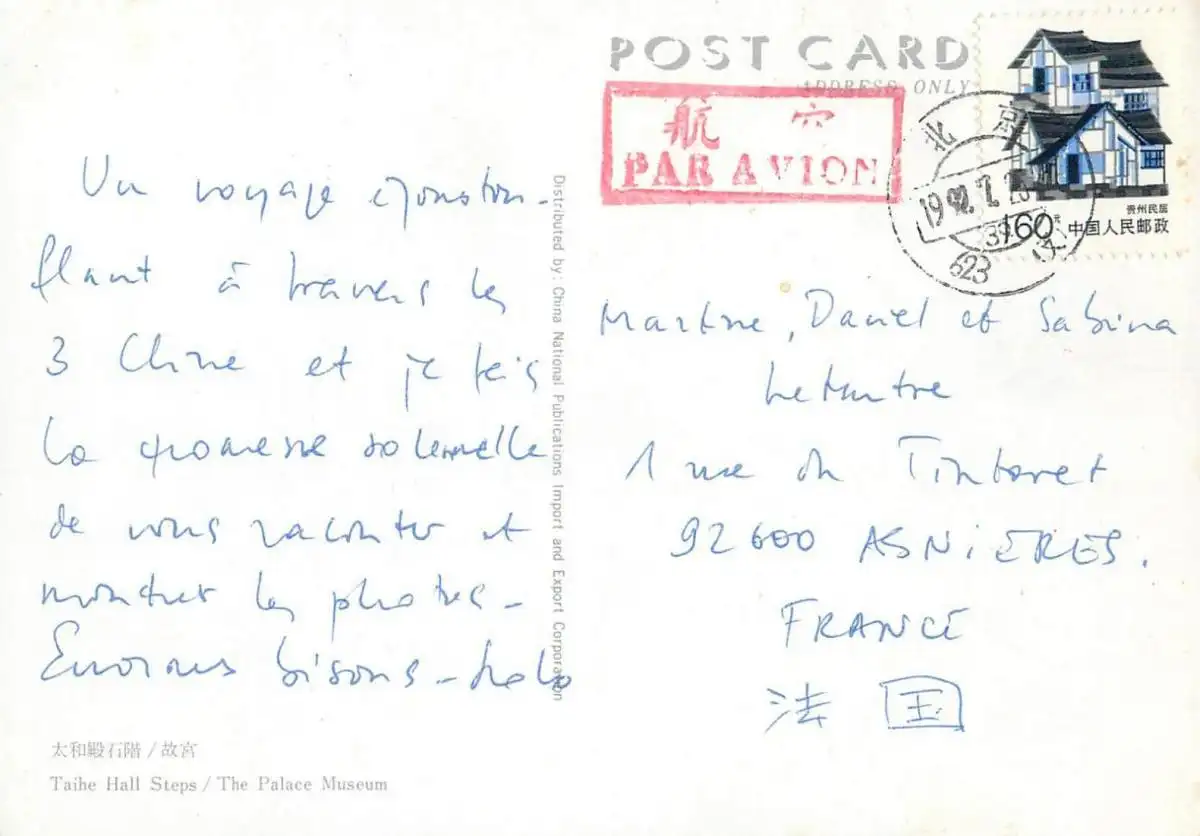 Un voyage époustou-
flant à travers les
3 Chine et je fais
la promesse solennelle
de vous raconter et
montrer les photos.
Enormes bisous -
太和殿石階 / 故宮
Taihe Hall Steps / The Palace Museum
Distributed by: China National Publications Import and Export Corporation
POST CARD
ADDRESS ONLY
航空
PAR AVION
北京
1992.7.2
623
贵州民居
160
中国人民邮政
Martine, Daniel et Sabina
1 rue du Tintoret
92600 ASNIÈRES.
FRANCE
法国